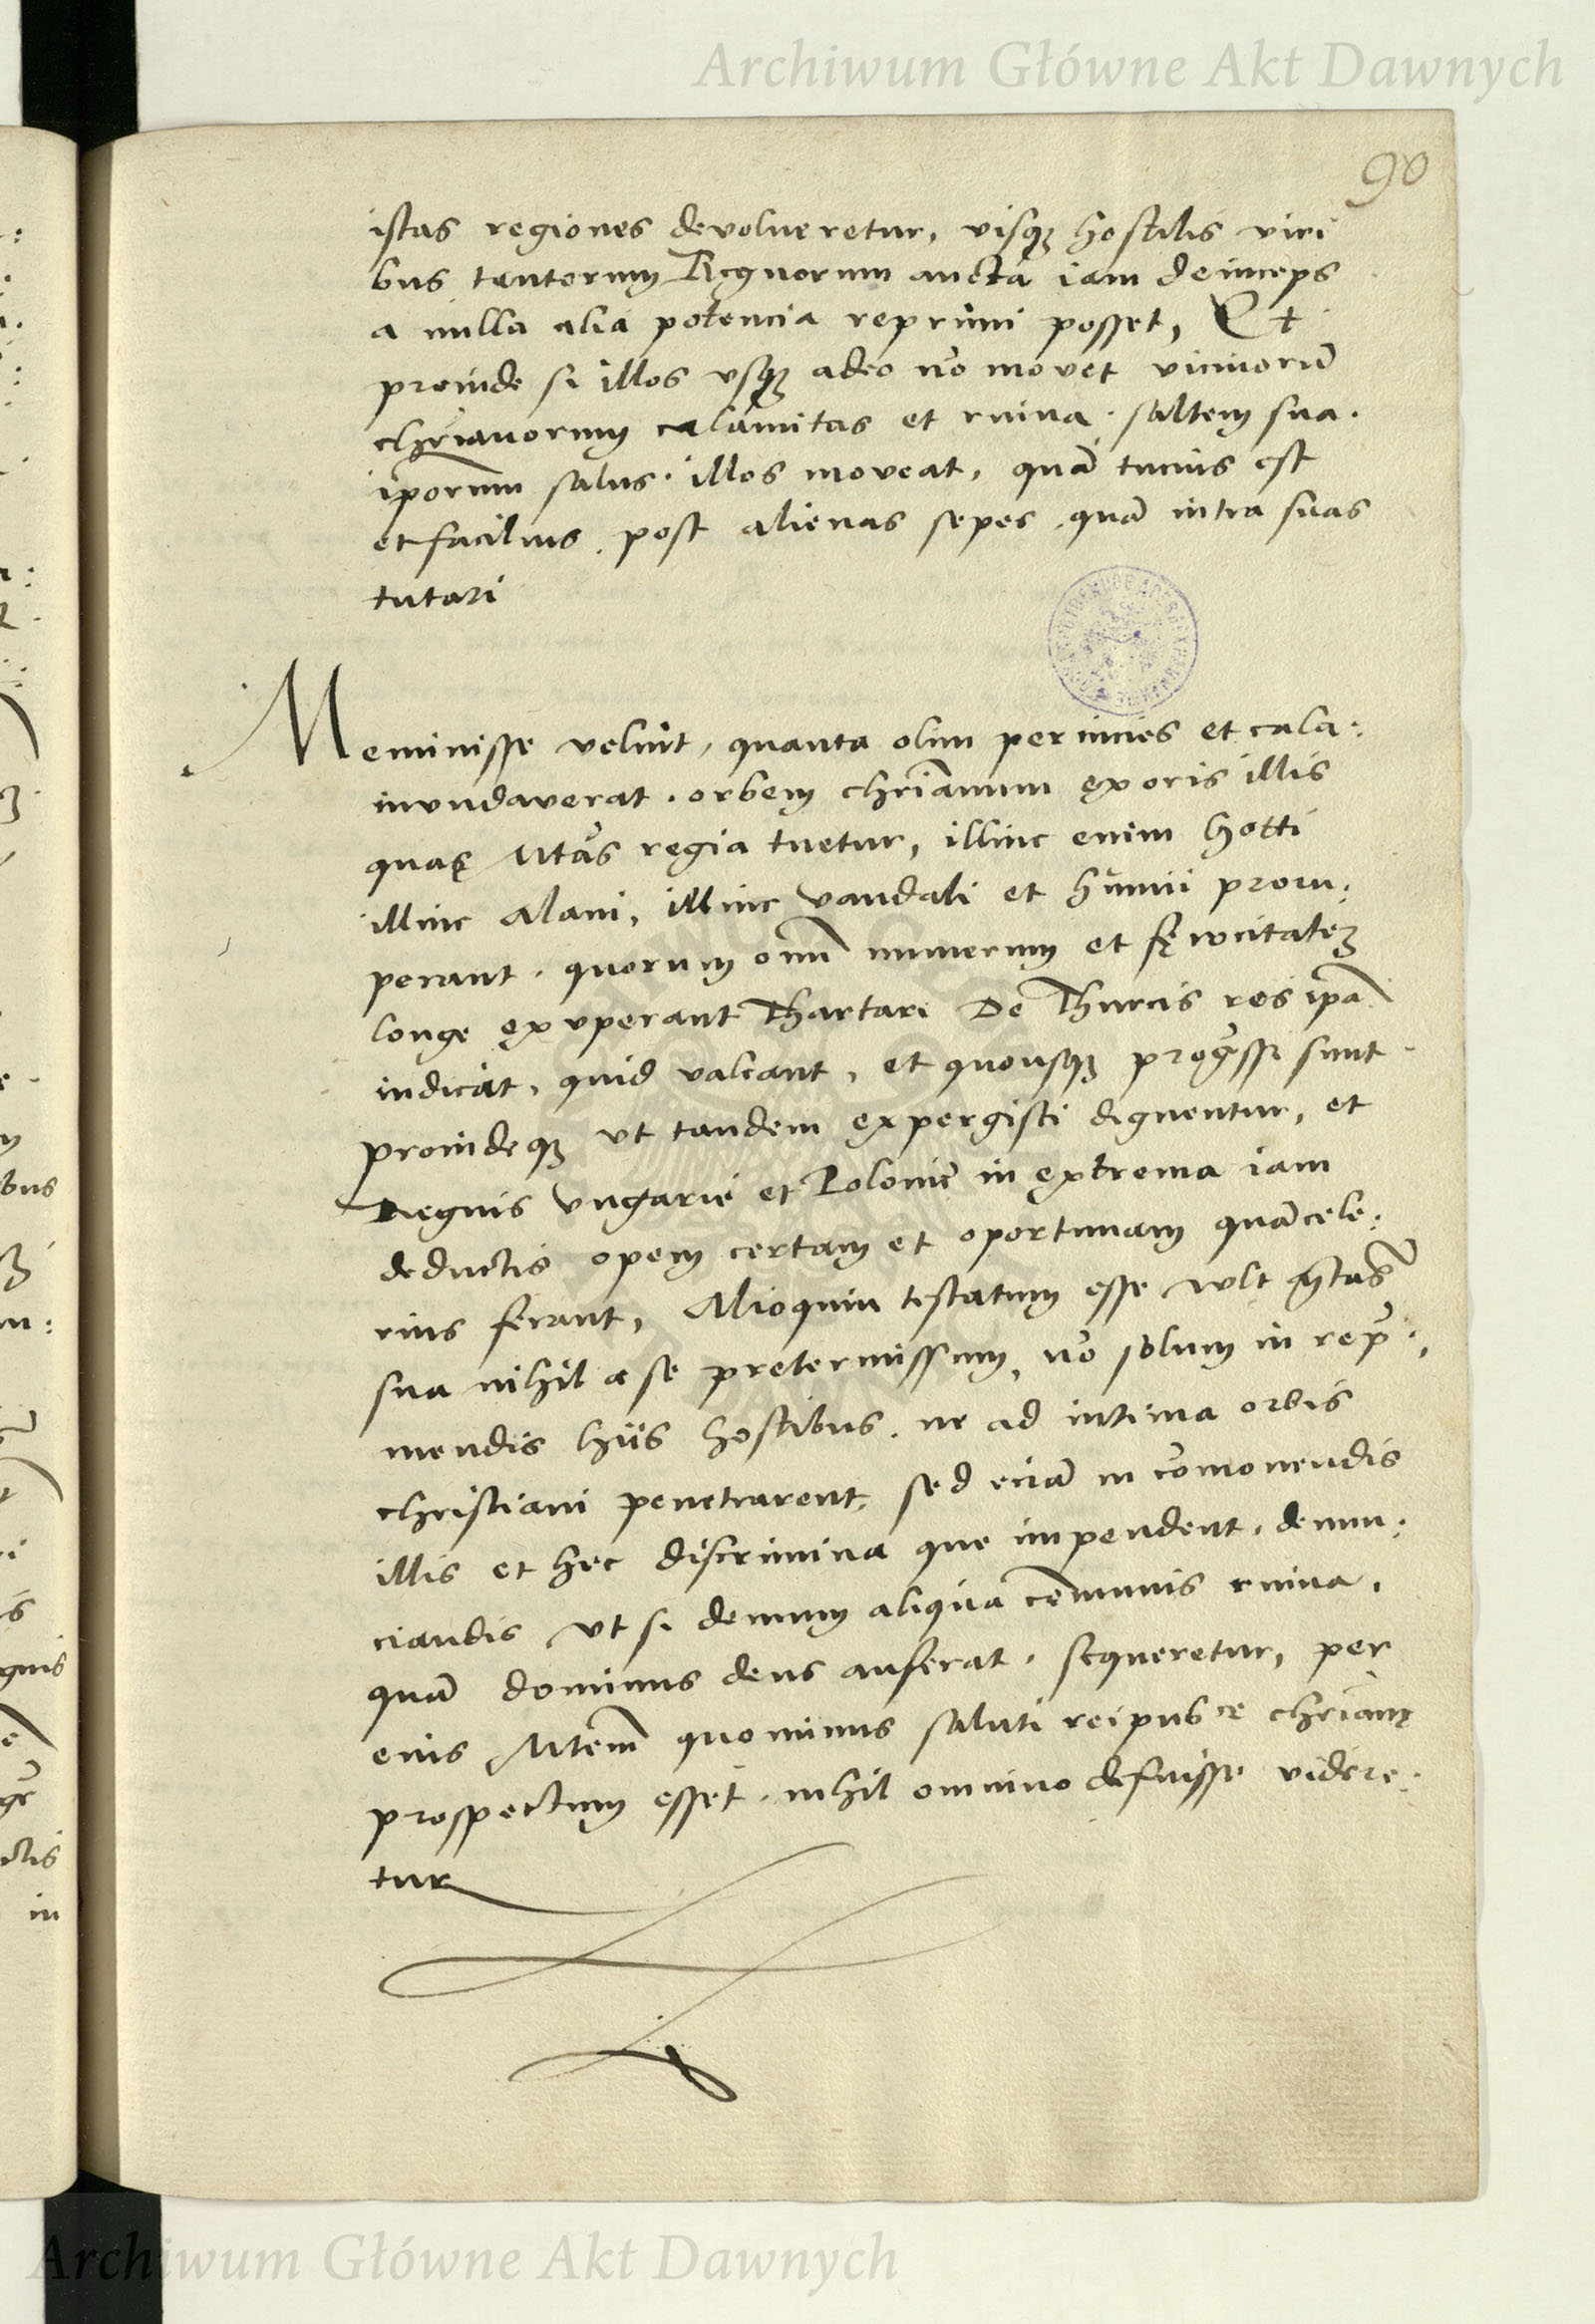 Archiwum Główne Akt Dawnych
90
istas regiones devolueretur, visqꝫ hostilis viri
bus tantorum Regnorum aucta iam deinceps
a nulla alia potencia reprimi posset, Et
proinde si illos vsqꝫ adeo nō movet vicinorū
chrīanorum calamitas et ruina. saltem sua.
ip̄orum salus. illos moveat, quā tucius est
et facilius. post alienas sepes, quā intra suas
tutari
Meminisse velint, quanta olim pernicies et cala:
inundaverat. orbem chrīanum ex oris illis
quas Mtās regia tuetur, illinc enim Gotti
illinc Alani, illinc vandali et hunnii proru:
perant. quorum om̄ numerum et fęrocitatēꝫ
longe exuperant Thartari De Thurcis res ip̄a
indicat, quid valeant, et quousqꝫ prog̃ssi sunt.
proindeqꝫ ut tandem expergisci dignentur, et
Regnis Ungarie et Polonie in extrema iam
deductis opem certam et oportunam quācele:
rius ferant, Alioquin testatum esse vult Mtas
sua nihil a se pretermissum, nō solum in rep̄:
mendis hiis hostibus. ne ad intima orbis
christiani penetrarent, sed eciā in cōmonendis
illis et hec discrimina que impendent, denun:
ciandis ut si demum aliqua cōmunis ruina,
quā dominus deus auferat. sequeretur, per
eius Mtem̄ quominus saluti reipubce chrīanę
prospectum esset. nihil omnino defuisse videre:
tur
Archiwum Główne Akt Dawnych